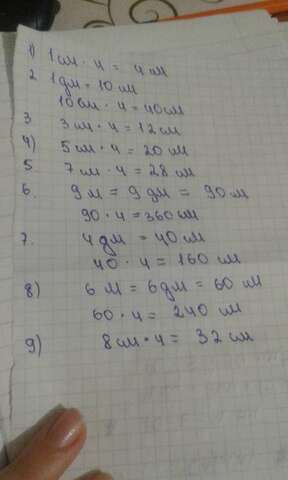 1) 1 см · 4 = 4 см
2 1 дм = 10 см
10 см · 4 = 40 см
3 3 см · 4 = 12 см
4) 5 см · 4 = 20 см
5 7 см · 4 = 28 см
6. 9 м = 9 дм = 90 м
90 · 4 = 360 см
7. 4 дм = 40 см
40 · 4 = 160 см
8) 6 м = 6 дм = 60 см
60 · 4 = 240 см
9) 8 см · 4 = 32 см